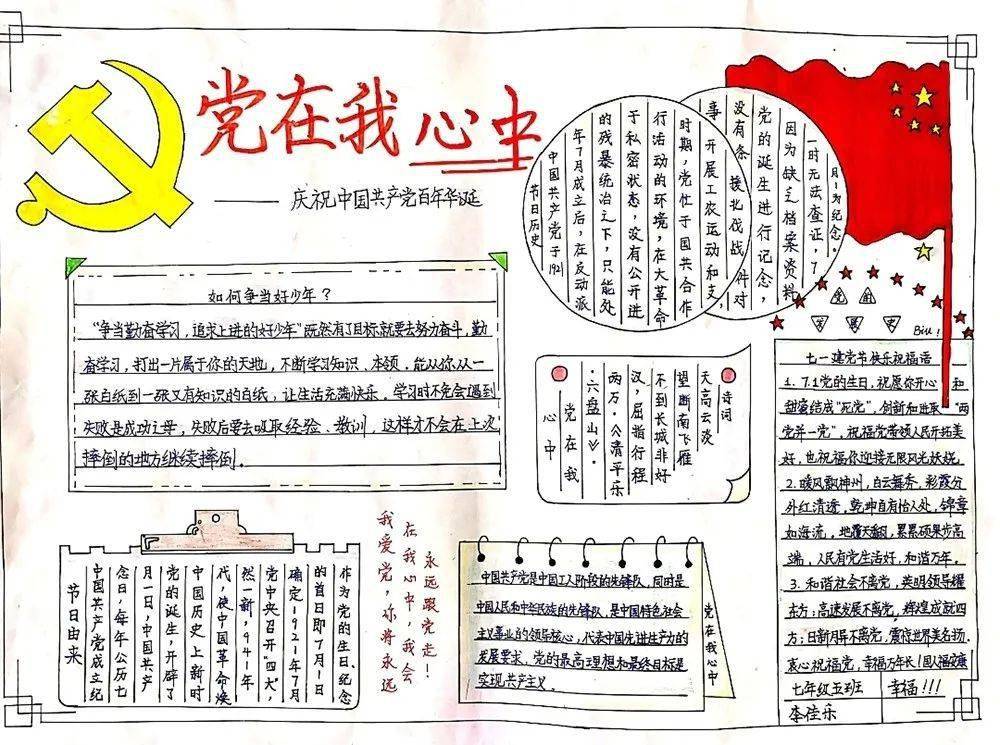 党在我心中
——庆祝中国共产党百年华诞
节日历史
中国共产党于1921
年7月成立后,在反动派
的残暴统治之下,只能处
于私密状态,没有公开进
行活动的环境,在大革命
时期,党忙于国共合作
开展工农运动和支
事 援北伐战
没有条 件对
党的诞生进行纪念,
因为缺乏档案资料
一时无法查证,7
月1为纪念。
如何争当好少年?
“争当勤奋学习,追求上进的好少年”既然有了目标就要去努力奋斗,勤
奋学习,打出一片属于你的天地,不断学习知识、本领。能从你从一
张白纸到一张又有知识的白纸,让生活充满快乐,学习时不免会遇到
失败是成功之母,失败后要去吸取经验、教训,这样才不会在上次
摔倒的地方继续摔倒。
诗词
天高云淡
望断南飞雁
不到长城非好
汉,屈指行程
两万。《清平乐
·六盘山》。
党在我
心中
Biu!
七一建党节快乐祝福语
1. 7.1党的生日,祝愿你开心 和
甜蜜结成“死党”,创新和进取 “两
党并一党”,祝福党带领人民开拓美
好,也祝福你迎接无限风光妖娆
2. 暖风飘神州,白云舞秀,彩霞分
外红清透,乾坤自有怡人处,锦章
如海流,地覆天翻,累累硕果步高
端,人民有党生活好,和谐万年。
3. 和谐社会不离党,英明领导耀
东方;高速发展不离党,辉煌成就四
方;日新月异不离党,震惊世界美名扬
衷心祝福党,幸福万年长!国人福
七年级五班
幸福!!!
李佳乐
节日由来
中国共产党成立纪
念日,每年公历七
月一日,中国共产
党的诞生,开辟了
中国历史上新时
代,使中国革命焕
然一新,1941年
党中央召开“四大”,
确定1921年7月
的首日即7月1日
作为党的生日、纪念
我爱党,你将永远
在我心中,我会
永远跟党走!
中国共产党是中国工人阶段的先锋队,同时是
中国人民和中华民族的先锋队,是中国特色社会
主义事业的领导核心,代表中国先进生产力的
发展要求,党的最高理想和最终目标是
实现共产主义。
党在我心中